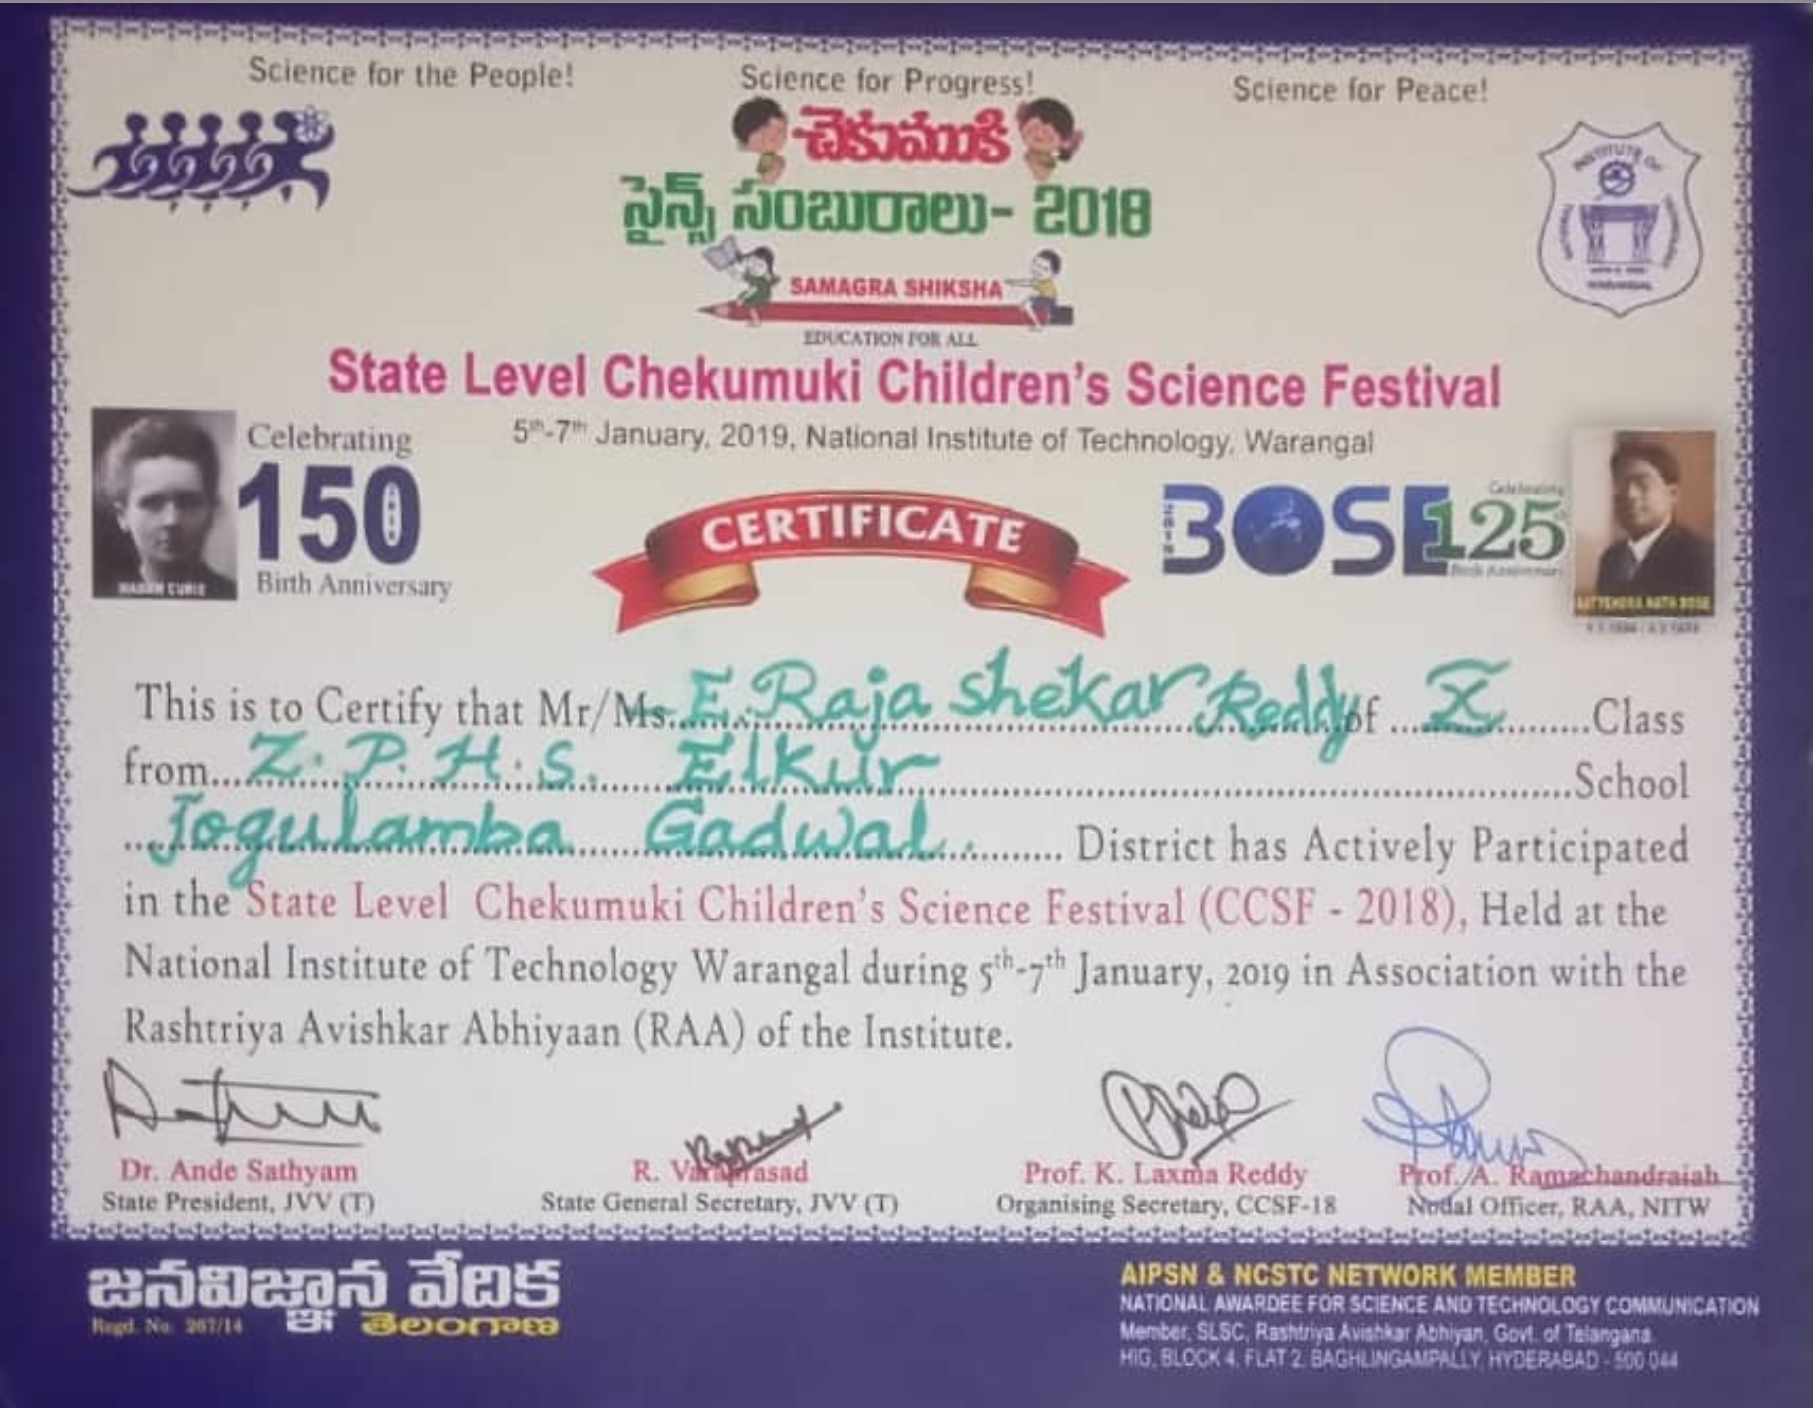 Science for the People!
Science for Progress!
Science for Peace!
చెకుముకి
సైన్స్ సంబురాలు- 2018
SAMAGRA SHIKSHA
EDUCATION FOR ALL
INSTITUTE OF
WARANGAL
State Level Chekumuki Children's Science Festival
5th-7th January, 2019, National Institute of Technology, Warangal
Celebrating
150
Birth Anniversary
MADAM CURIE
CERTIFICATE
BOSE
Celebrating
125
Birth Anniversary
SATYENDRA NATH BOSE
This is to Certify that Mr/Ms. E. Raja shekar Reddy of X Class
from Z. P. H. S. Elkur School
Jogulamba Gadwal. District has Actively Participated
in the State Level Chekumuki Children's Science Festival (CCSF - 2018), Held at the
National Institute of Technology Warangal during 5th-7th January, 2019 in Association with the
Rashtriya Avishkar Abhiyaan (RAA) of the Institute.
Dr. Ande Sathyam
State President, JVV (T)
R. Varaprasad
State General Secretary, JVV (T)
Prof. K. Laxma Reddy
Organising Secretary, CCSF-18
Prof. A. Ramachandraiah
Nodal Officer, RAA, NITW
జనవిజ్ఞాన వేదిక
Regd. No. 267/14
తెలంగాణ
AIPSN & NCSTC NETWORK MEMBER
NATIONAL AWARDEE FOR SCIENCE AND TECHNOLOGY COMMUNICATION
Member, SLSC, Rashtriya Avishkar Abhiyan, Govt. of Telangana.
HIG, BLOCK 4, FLAT 2, BAGHLINGAMPALLY, HYDERABAD - 500 044